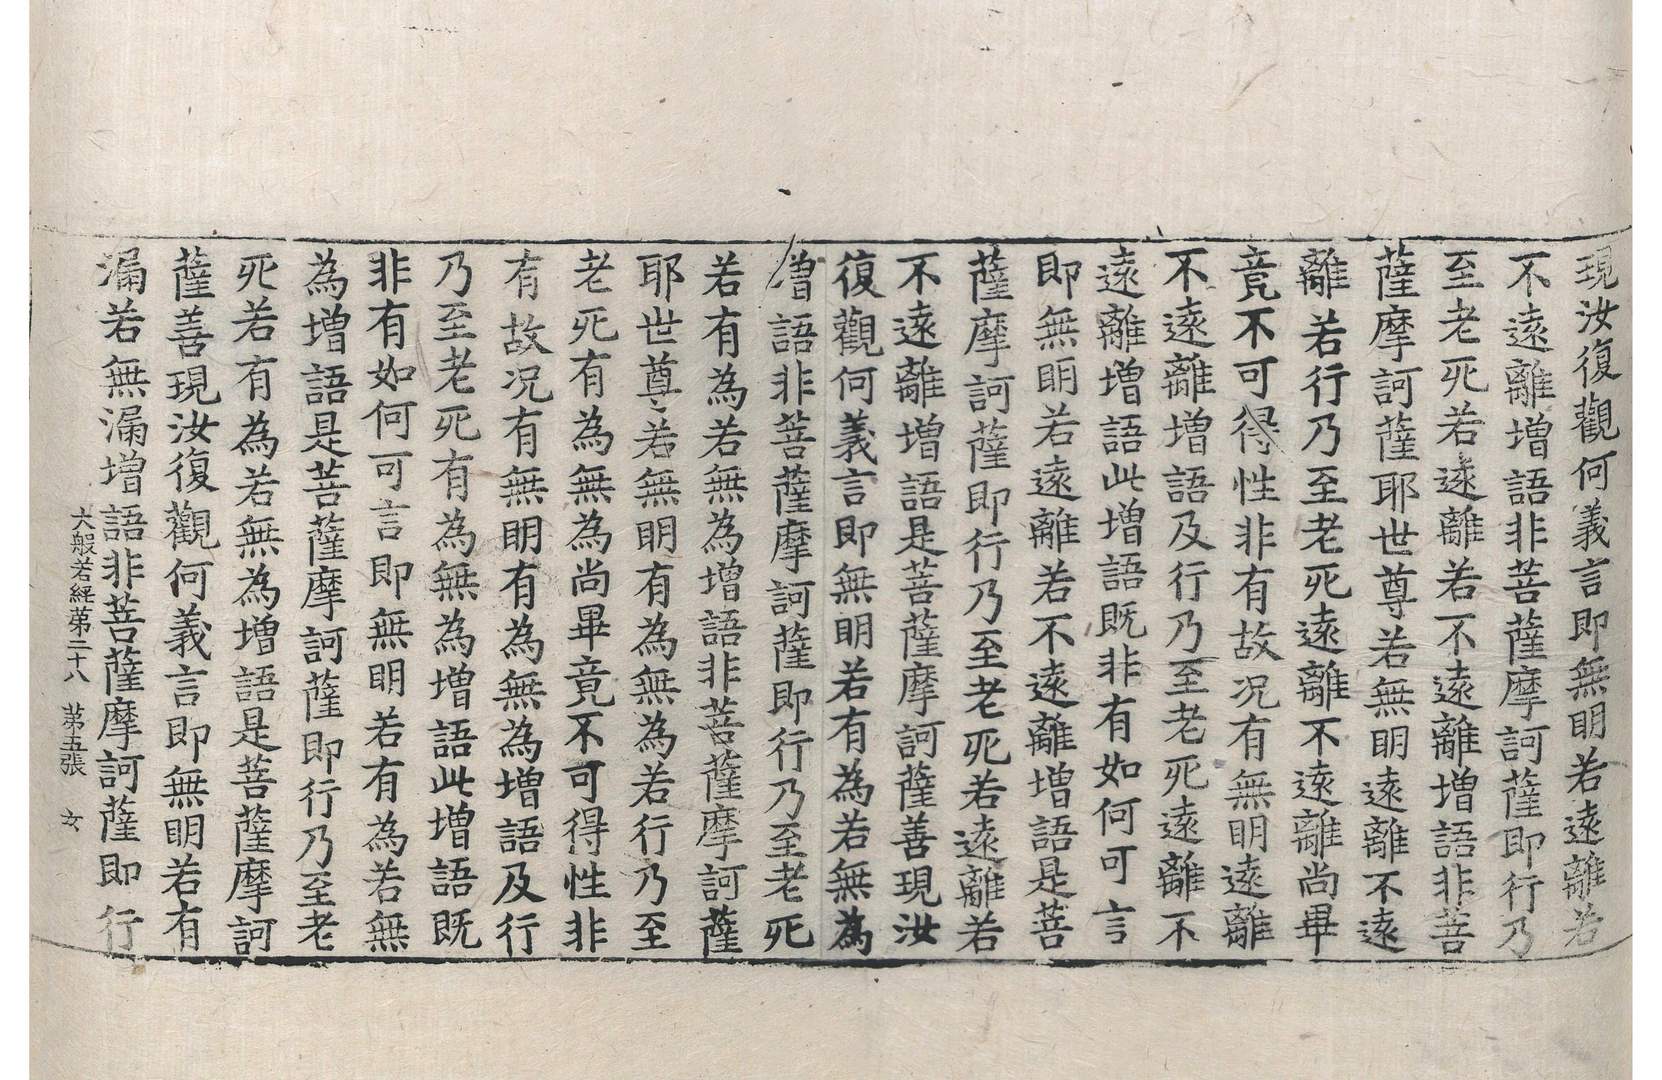 現汝復觀何義言即無明若遠離若
不遠離增語非菩薩摩訶薩即行乃
至老死若遠離若不遠離增語非菩
薩摩訶薩耶世尊若無明遠離不遠
離若行乃至老死遠離不遠離尚畢
竟不可得性非有故况有無明遠離
不遠離增語及行乃至老死遠離不
遠離增語此增語既非有如何可言
即無明若遠離若不遠離增語是菩
薩摩訶薩即行乃至老死若遠離若
不遠離增語是菩薩摩訶薩善現汝
復觀何義言即無明若有為若無為
增語非菩薩摩訶薩即行乃至老死
若有為若無為增語非菩薩摩訶薩
耶世尊若無明有為無為若行乃至
老死有為無為尚畢竟不可得性非
有故况有無明有為無為增語及行
乃至老死有為無為增語此增語既
非有如何可言即無明若有為若無
為增語是菩薩摩訶薩即行乃至老
死若有為若無為增語是菩薩摩訶
薩善現汝復觀何義言即無明若有
漏若無漏增語非菩薩摩訶薩即行
大般若経第二十八 第五張